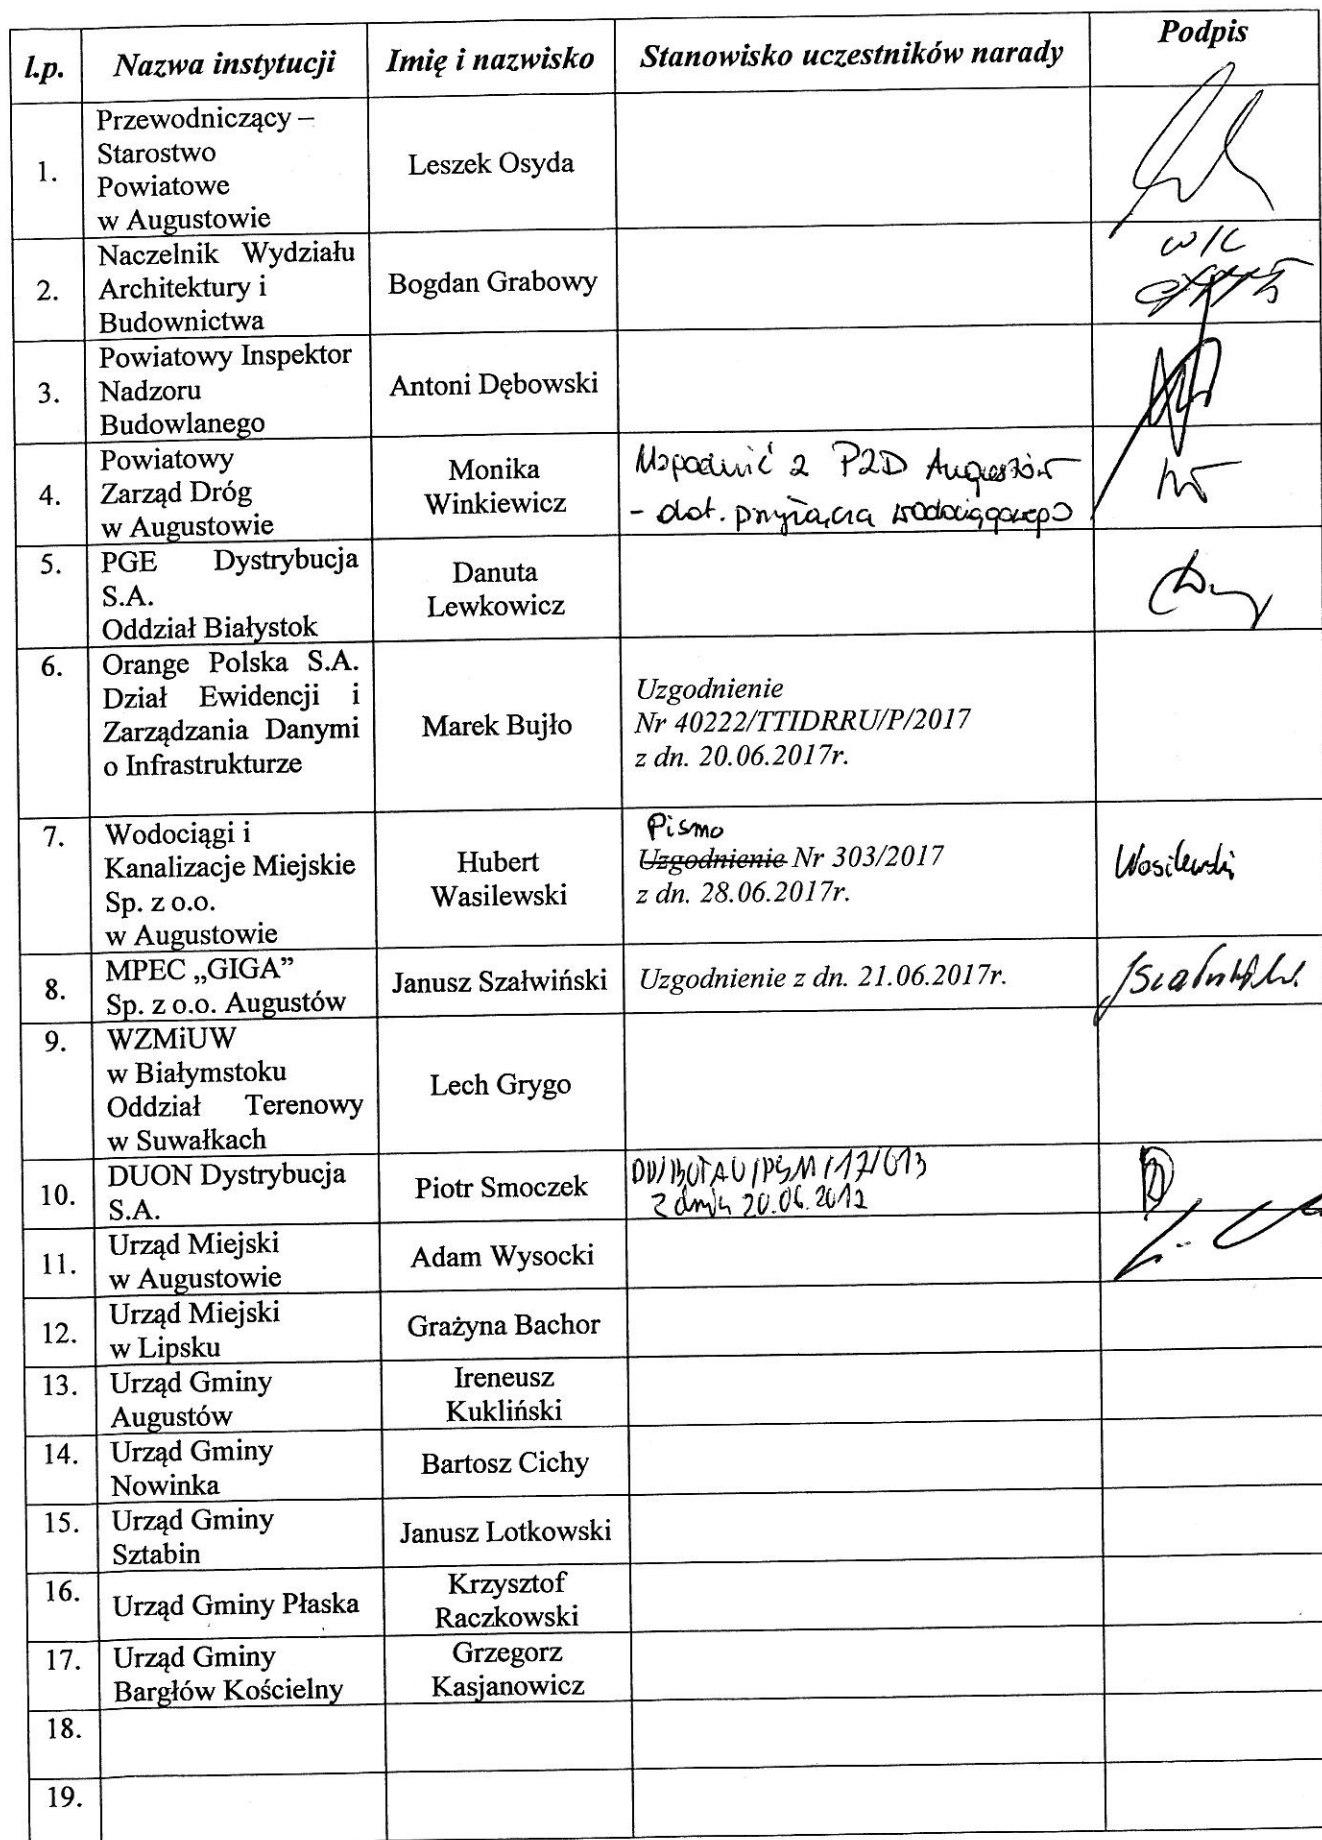 l.p. Nazwa instytucji Imię i nazwisko Stanowisko uczestników narady Podpis
1.
Przewodniczący –
Starostwo
Powiatowe
w Augustowie
Leszek Osyda
2.
Naczelnik Wydziału
Architektury i
Budownictwa
Bogdan Grabowy
3.
Powiatowy Inspektor
Nadzoru
Budowlanego
Antoni Dębowski
4.
Powiatowy
Zarząd Dróg
w Augustowie
Monika
Winkiewicz
Uzgodnić z PZD Augustów
- dot. przyłącza wodociągowego
5.
PGE Dystrybucja
S.A.
Oddział Białystok
Danuta
Lewkowicz
6.
Orange Polska S.A.
Dział Ewidencji i
Zarządzania Danymi
o Infrastrukturze
Marek Bujło
Uzgodnienie
Nr 40222/TTIDRRU/P/2017
z dn. 20.06.2017r.
7.
Wodociągi i
Kanalizacje Miejskie
Sp. z o.o.
w Augustowie
Hubert
Wasilewski
Pismo
Uzgodnienie Nr 303/2017
z dn. 28.06.2017r.
Wasilewski
8.
MPEC „GIGA”
Sp. z o.o. Augustów
Janusz Szałwiński
Uzgodnienie z dn. 21.06.2017r.
9.
WZMiUW
w Białymstoku
Oddział Terenowy
w Suwałkach
Lech Grygo
10.
DUON Dystrybucja
S.A.
Piotr Smoczek
z dnia 20.06.2017
11.
Urząd Miejski
w Augustowie
Adam Wysocki
12.
Urząd Miejski
w Lipsku
Grażyna Bachor
13.
Urząd Gminy
Augustów
Ireneusz
Kukliński
14.
Urząd Gminy
Nowinka
Bartosz Cichy
15.
Urząd Gminy
Sztabin
Janusz Lotkowski
16.
Urząd Gminy Płaska
Krzysztof
Raczkowski
17.
Urząd Gminy
Bargłów Kościelny
Grzegorz
Kasjanowicz
18.
19.